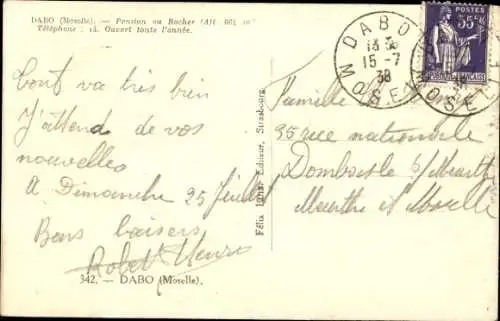 DABO (Moselle). — Pension du Rocher (Alt. 664 m)
Téléphone : 14. Ouvert toute l'année.
Tout va très bien
J'attend de vos
nouvelles
A Dimanche 25 Juillet
Bons baisers
Robert Henri
342. — DABO (Moselle).
Félix Luib, Editeur, Strasbourg.
DABO
15-7
38
MOSELLE
POSTES
55c
Famille
35 rue nationale
Dombasle s/Meurthe
Meurthe et Moselle